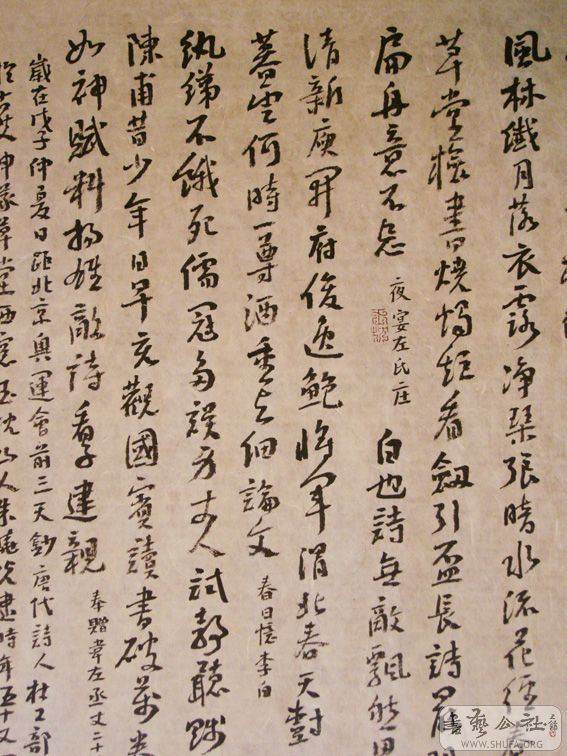 風林纖月落衣露淨琴張暗水流花徑春
草堂檢書燒燭短看劍引盃長詩罷
扁舟意不忘 夜宴左氏庄 白也詩無敵飄然思
清新庾開府俊逸鮑將軍渭北春天樹
暮雲何時一尊酒重與細論文 春日憶李白
紈絝不餓死儒冠多誤身丈人試靜聽賤
陳甫昔少年日早充觀國賓讀書破萬卷
如神賦料揚雄敵詩看子建親 奉贈韋左丞丈二十
歲在戊子仲夏日距北京奧運會前三天鈔唐代詩人杜工部
草堂西窗玉沈山人朱 時年五十又
書藝公社
WWW.SHUFA.ORG